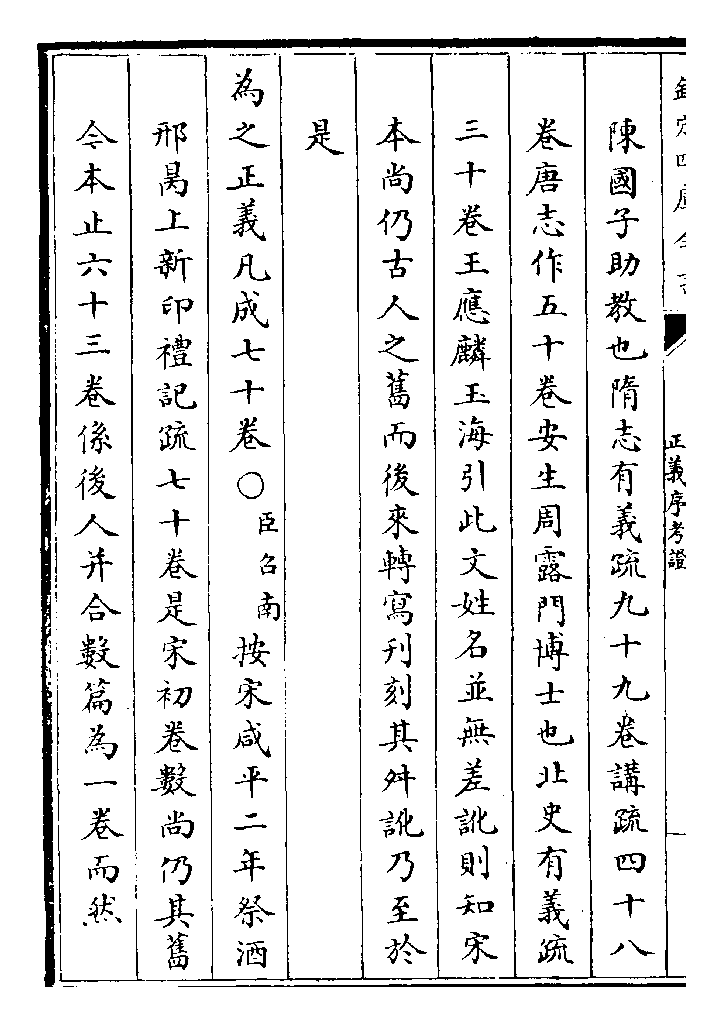 欽定四庫全書
正義序考證
陳國子助教也隋志有義疏九十九卷講疏四十八
卷唐志作五十卷安生周露門博士也北史有義疏
三十卷王應麟玉海引此文姓名並無差訛則知宋
本尚仍古人之舊而後來轉寫刊刻其舛訛乃至於
是
為之正義凡成七十卷○臣召南按宋咸平二年祭酒
邢昺上新印禮記疏七十卷是宋初卷數尚仍其舊
今本止六十三卷係後人并合數篇為一卷而然